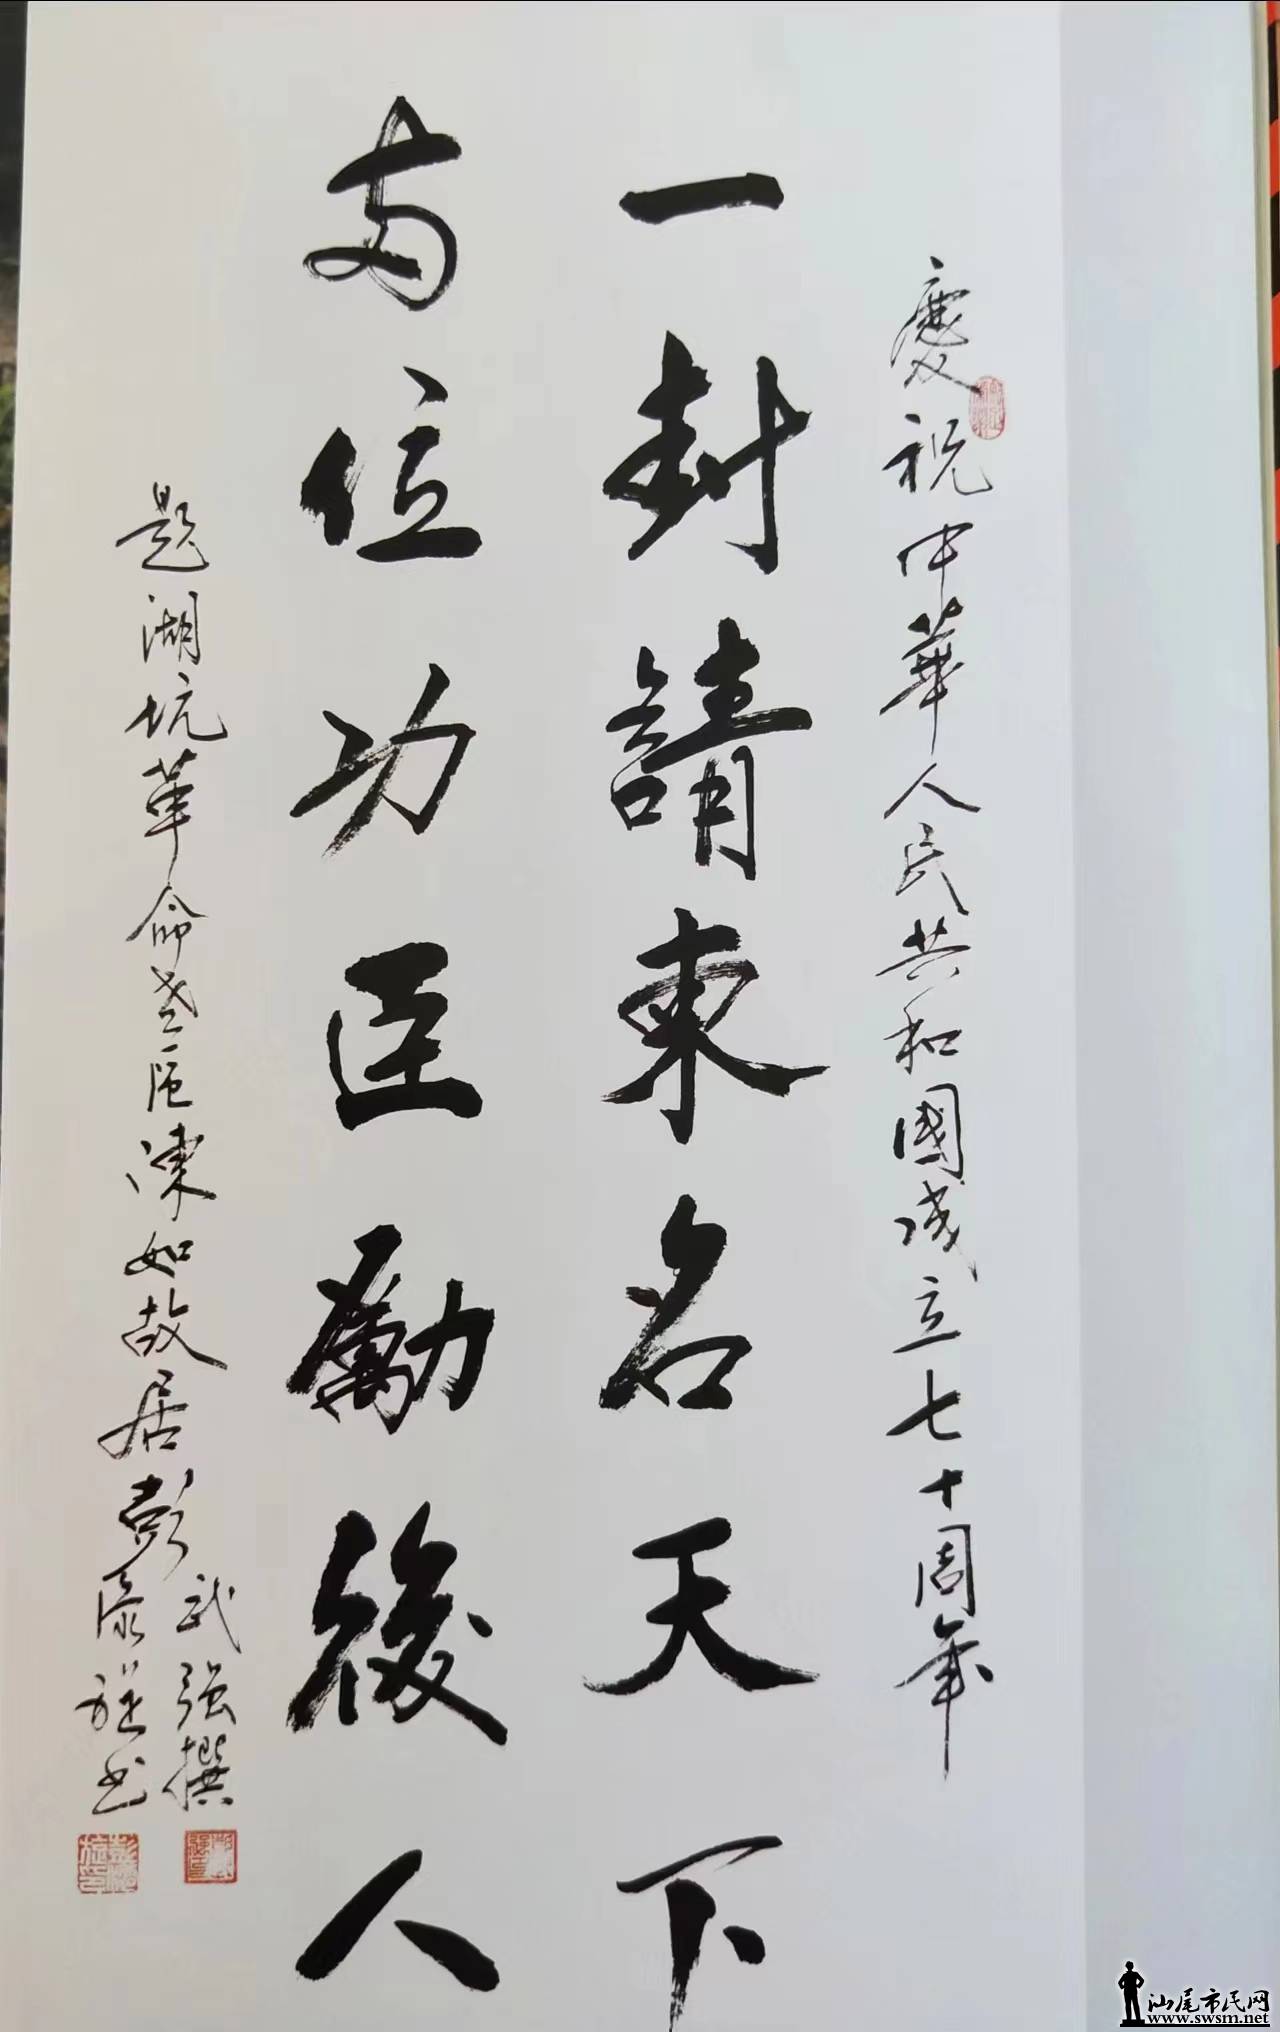 慶祝中華人民共和國成立七十周年
一封請柬名天下
两位功臣勵後人
題湖坑革命老區陳如故居彭
武強撰
禄旋书
汕尾市民网
www.swsm.net